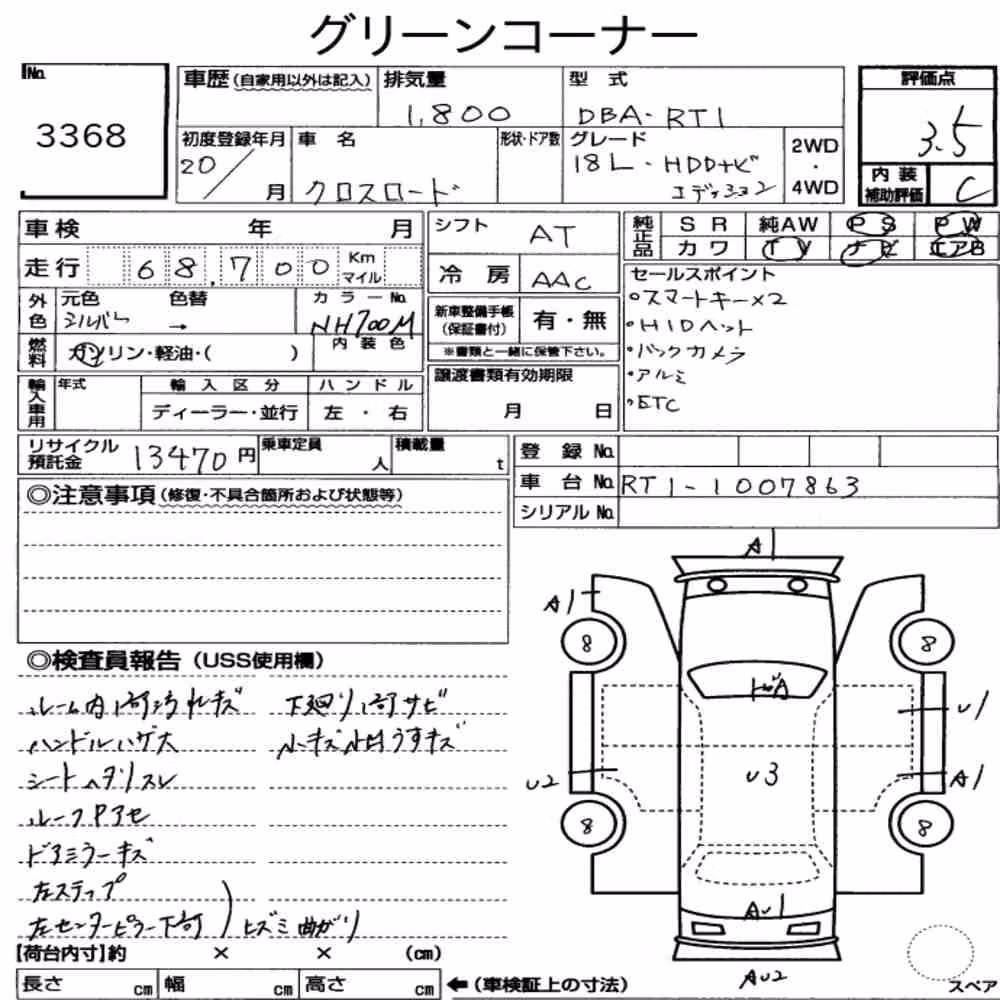 グリーンコーナー
No.
3368
車歴(自家用以外は記入)
排気量
1,800
型 式
DBA-RT1
評価点
3.5
初度登録年月
20/ 月
車 名
クロスロード
形状・ドア数
グレード
18L・HDDナビ
エディション
2WD
・
4WD
内 装
補助評価
C
車検 年 月
シフト
AT
純正品
SR 純AW PS PW
カワ TV ナビ エアB
走行 68,700 Km
マイル
冷 房
AAC
セールスポイント
・スマートキー×2
・HIDヘット
・バックカメラ
・アルミ
・ETC
外色
元色 色替
シルバー →
カラーNo.
NH700M
新車整備手帳
(保証書付)
有・無
※書類と一緒に保管下さい。
燃料
ガソリン・軽油・( )
内 装 色
譲渡書類有効期限
月 日
輸入車用
年式
輸 入 区 分
ディーラー・並行
ハ ン ド ル
左 ・ 右
リサイクル
預託金
13470円
乗車定員
人
積載量
t
登 録 No.
車 台 No.
RT1-1007863
シリアル No.
◎注意事項(修復・不具合箇所および状態等)
◎検査員報告(USS使用欄)
ルーム内、汚れキズ
下廻り、サビ
ハンドルハゲ大
小キズ小凹うすキズ
シートヘタリスレ
ルーフPアセ
ドアミラーキズ
左ステップ
左センターピラー下部
ヒズミ曲がり
A
A1
8
8
U1
U2
U3
A1
8
8
AU1
AU2
スペア
【荷台内寸】約 × × (cm)
長さ cm 幅 cm 高さ cm
←(車検証上の寸法)